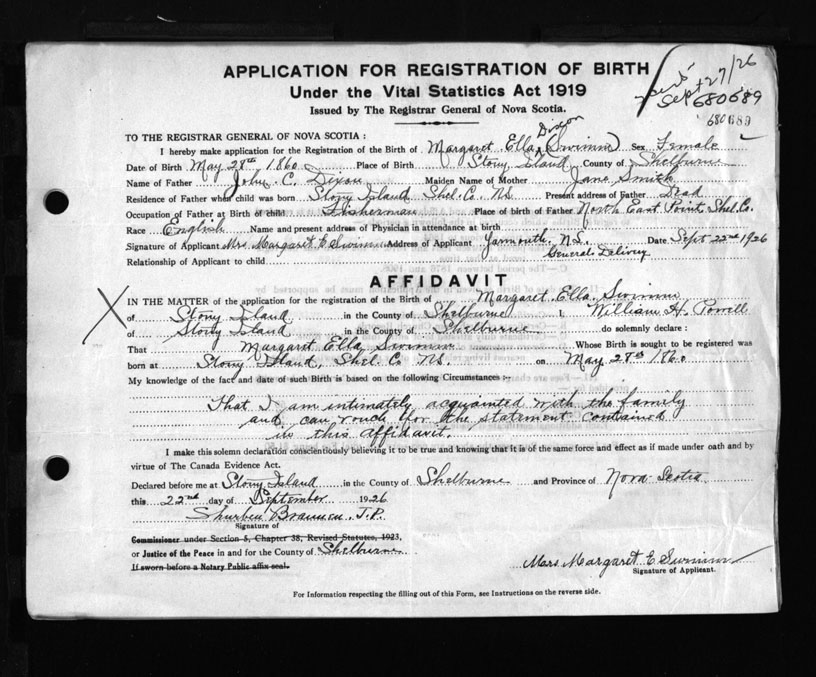 APPLICATION FOR REGISTRATION OF BIRTH
Under the Vital Statistics Act 1919
Issued by The Registrar General of Nova Scotia.
Sept 27/26
680689
680689
TO THE REGISTRAR GENERAL OF NOVA SCOTIA :
Dixon
I hereby make application for the Registration of the Birth of Margaret Ella (Swimm) Sex Female
Date of Birth May 28th 1860 Place of Birth Stony Island County of Shelburne
Name of Father John C. Dixon Maiden Name of Mother Jane Smith
Residence of Father when child was born Stony Island Shel. Co. N.S. Present address of Father Dead
Occupation of Father at Birth of child Fisherman Place of birth of Father North East Point Shel. Co.
Race English Name and present address of Physician in attendance at birth
Signature of Applicant Mrs. Margaret E Swimm Address of Applicant Yarmouth, N.S. Date Sept 22nd 1926
General Delivery
Relationship of Applicant to child
AFFIDAVIT
IN THE MATTER of the application for the registration of the Birth of Margaret Ella Swimm
of Stony Island in the County of Shelburne I, William H. Powell
of Stony Island in the County of Shelburne do solemnly declare :
That Margaret Ella Swimm Whose Birth is sought to be registered was
born at Stony Island, Shel. Co. N.S. on May 28th 1860
My knowledge of the fact and date of such Birth is based on the following Circumstances :-
That I am intimately acquainted with the family
and can vouch for the statement contained
in this affidavit.
I make this solemn declaration conscientiously believing it to be true and knowing that it is of the same force and effect as if made under oath and by
virtue of The Canada Evidence Act.
Declared before me at Stony Island in the County of Shelburne and Province of Nova Scotia
this 22nd day of September 1926
J.P.
Signature of
Commissioner under Section 5, Chapter 38, Revised Statutes, 1923,
or Justice of the Peace in and for the County of Shelburne
If sworn before a Notary Public affix seal.
Mrs. Margaret E Swimm
Signature of Applicant.
For Information respecting the filling out of this Form, see Instructions on the reverse side.